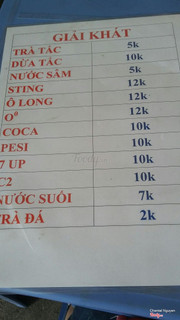 GIẢI KHÁT
TRÀ TẮC 5k
DỪA TẮC 10k
NƯỚC SÂM 5k
STING 12k
Ô LONG 12k
O⁰ 12k
COCA 10k
PESI 10k
7 UP 10k
C2 10k
NƯỚC SUỐI 7k
TRÀ ĐÁ 2k